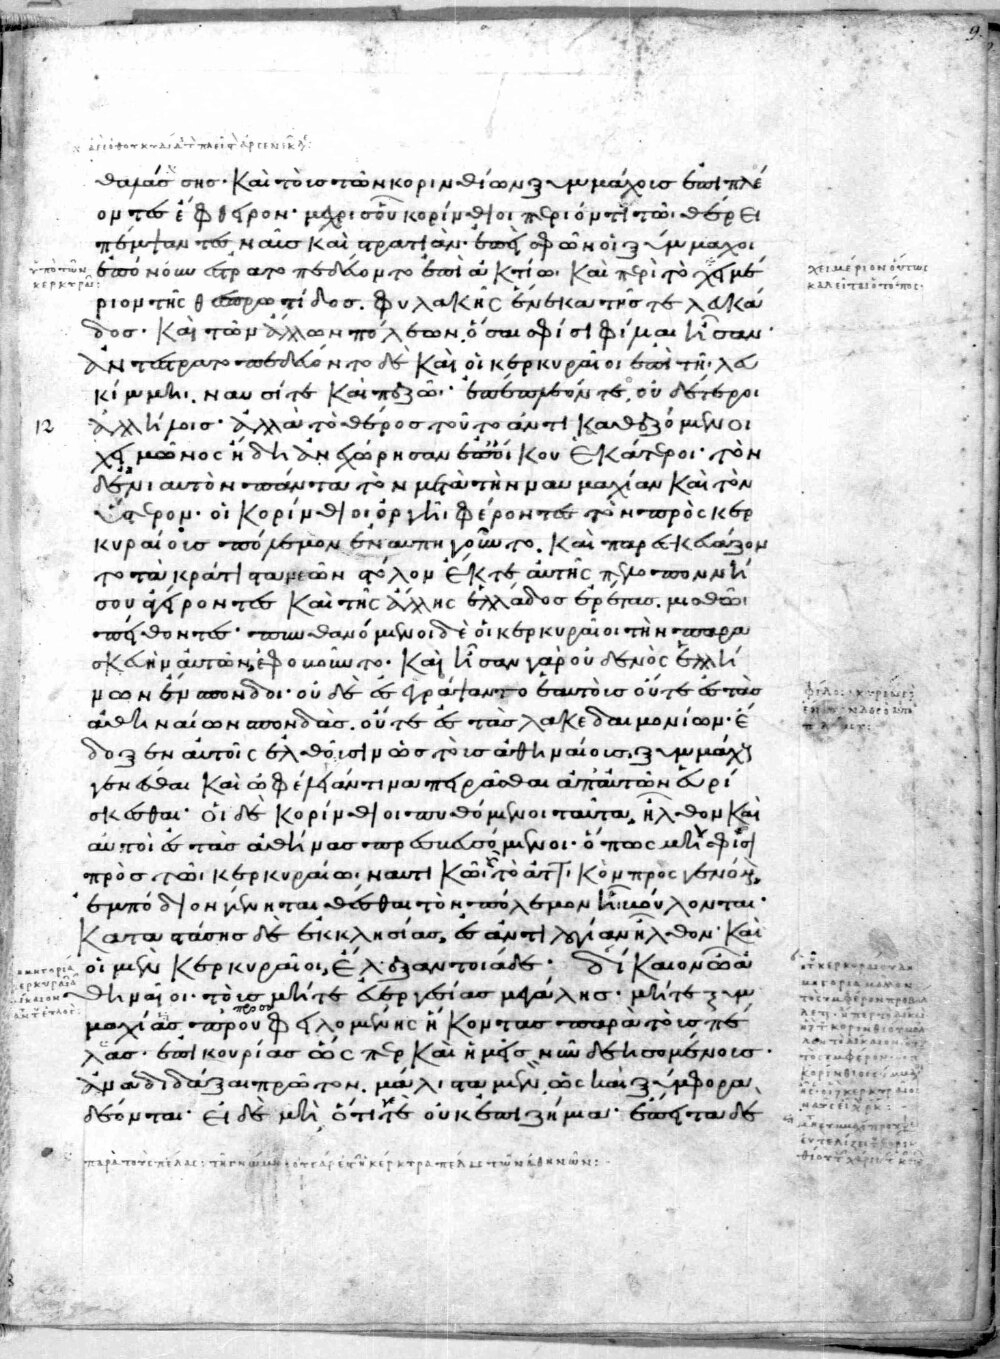 θαλάσσης· καὶ τοῖς τῶν κορινθίων ξυμμάχοις ἐπιπλέ
οντες ἔφθειρον· μέχρις οὗ κορίνθιοι περιόντι τῶι θέρει
πέμψαντες ναῦς καὶ στρατιὰν· ἐπεὶ σφῶν οἱ ξύμμαχοι
ἐπόνουν ἐστρατοπεδεύοντο ἐπὶ ἀκτίωι· καὶ περὶ τὸ χειμέ
ριον τῆς θεσπρωτίδος. φυλακῆς ἕνεκα τῆς τε λευκά
δος· καὶ τῶν ἄλλων πόλεων, ὅσαι σφίσι φίλιαι ἦσαν·
ἀντεστρατοπεδεύοντο δὲ καὶ οἱ κερκυραῖοι ἐπὶ τῆι λευ
κίμμηι. ναυσί τε καὶ πεζῶι· ἐπέπλεόν τε, οὐδέτεροι
12 ἀλλήλοις· ἀλλὰ τὸ θέρος τοῦτο ἀντικαθεζόμενοι
χειμῶνος ἤδη ἀνεχώρησαν ἐπ' οἴκου ἑκάτεροι· τὸν
δ' ἐνιαυτὸν πάντα τὸν μετὰ τὴν ναυμαχίαν καὶ τὸν
ὕστερον· οἱ κορίνθιοι ὀργῆι φέροντες τὸν πρὸς κερ
κυραίους πόλεμον ἐναυπηγοῦντο. καὶ παρεσκευάζον
το τὰ κράτιστα νεῶν στόλον ἔκ τε αὐτῆς πελοποννή
σου ἀγείροντες καὶ τῆς ἄλλης ἑλλάδος ἐρέτας. μισθῶι
πείθοντες· πυνθανόμενοι δὲ οἱ κερκυραῖοι τὴν παρα
σκευὴν αὐτῶν, ἐφοβοῦντο· καὶ ἦσαν γὰρ οὐδενὸς ἑλλή
νων ἔνσπονδοι· οὐδὲ ἐσεγράψαντο ἑαυτοὺς οὔτε ἐς τὰς
ἀθηναίων σπονδὰς. οὔτε ἐς τὰς λακεδαιμονίων· ἔ
δοξεν αὐτοῖς ἐλθοῦσιν ὡς τοὺς ἀθηναίους, ξυμμάχους
γενέσθαι καὶ ὠφελίαν τινα πειρᾶσθαι ἀπ' αὐτῶν εὑρί
σκεσθαι· οἱ δὲ κορίνθιοι πυθόμενοι ταῦτα, ἦλθον καὶ
αὐτοὶ ἐς τὰς ἀθήνας πρεσβευσόμενοι· ὅπως μὴ σφίσι
πρὸς τῶι κερκυραίωι ναυτικῶι τὸ ἀττικὸν προσγενόμενον
ἐμπόδιον γένηται θέσθαι τὸν πόλεμον ἧι βούλονται·
καταστάσης δὲ ἐκκλησίας, ἐς ἀντιλογίαν ἦλθον· καὶ
οἱ μὲν κερκυραῖοι, ἔλεξαν τοιάδε· δίκαιον ὦ ἀ
θηναῖοι· τοὺς μήτε εὐεργεσίας μεγάλης· μήτε ξυμ
μαχίας προυφειλομένης ἥκοντας παρὰ τοὺς πέ
λας· ἐπικουρίας ὥσπερ καὶ ἡμεῖς νῦν δεησομένους·
ἀναδιδάξαι πρῶτον. μάλιστα μὲν ὡς καὶ ξύμφορα
δέονται· εἰ δὲ μὴ ὅτι γε οὐκ ἐπιζήμια· ἔπειτα δὲ
ὑπὸ τῶν
χειμέριον οὕτως
καλεῖται ὁ τόπος: